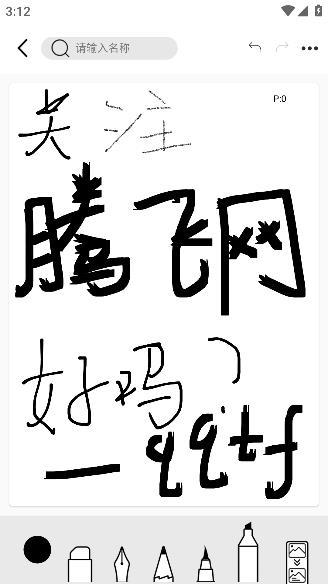 3:12
请输入名称
P:0
关注
腾飞网
好吗？
一qqtf